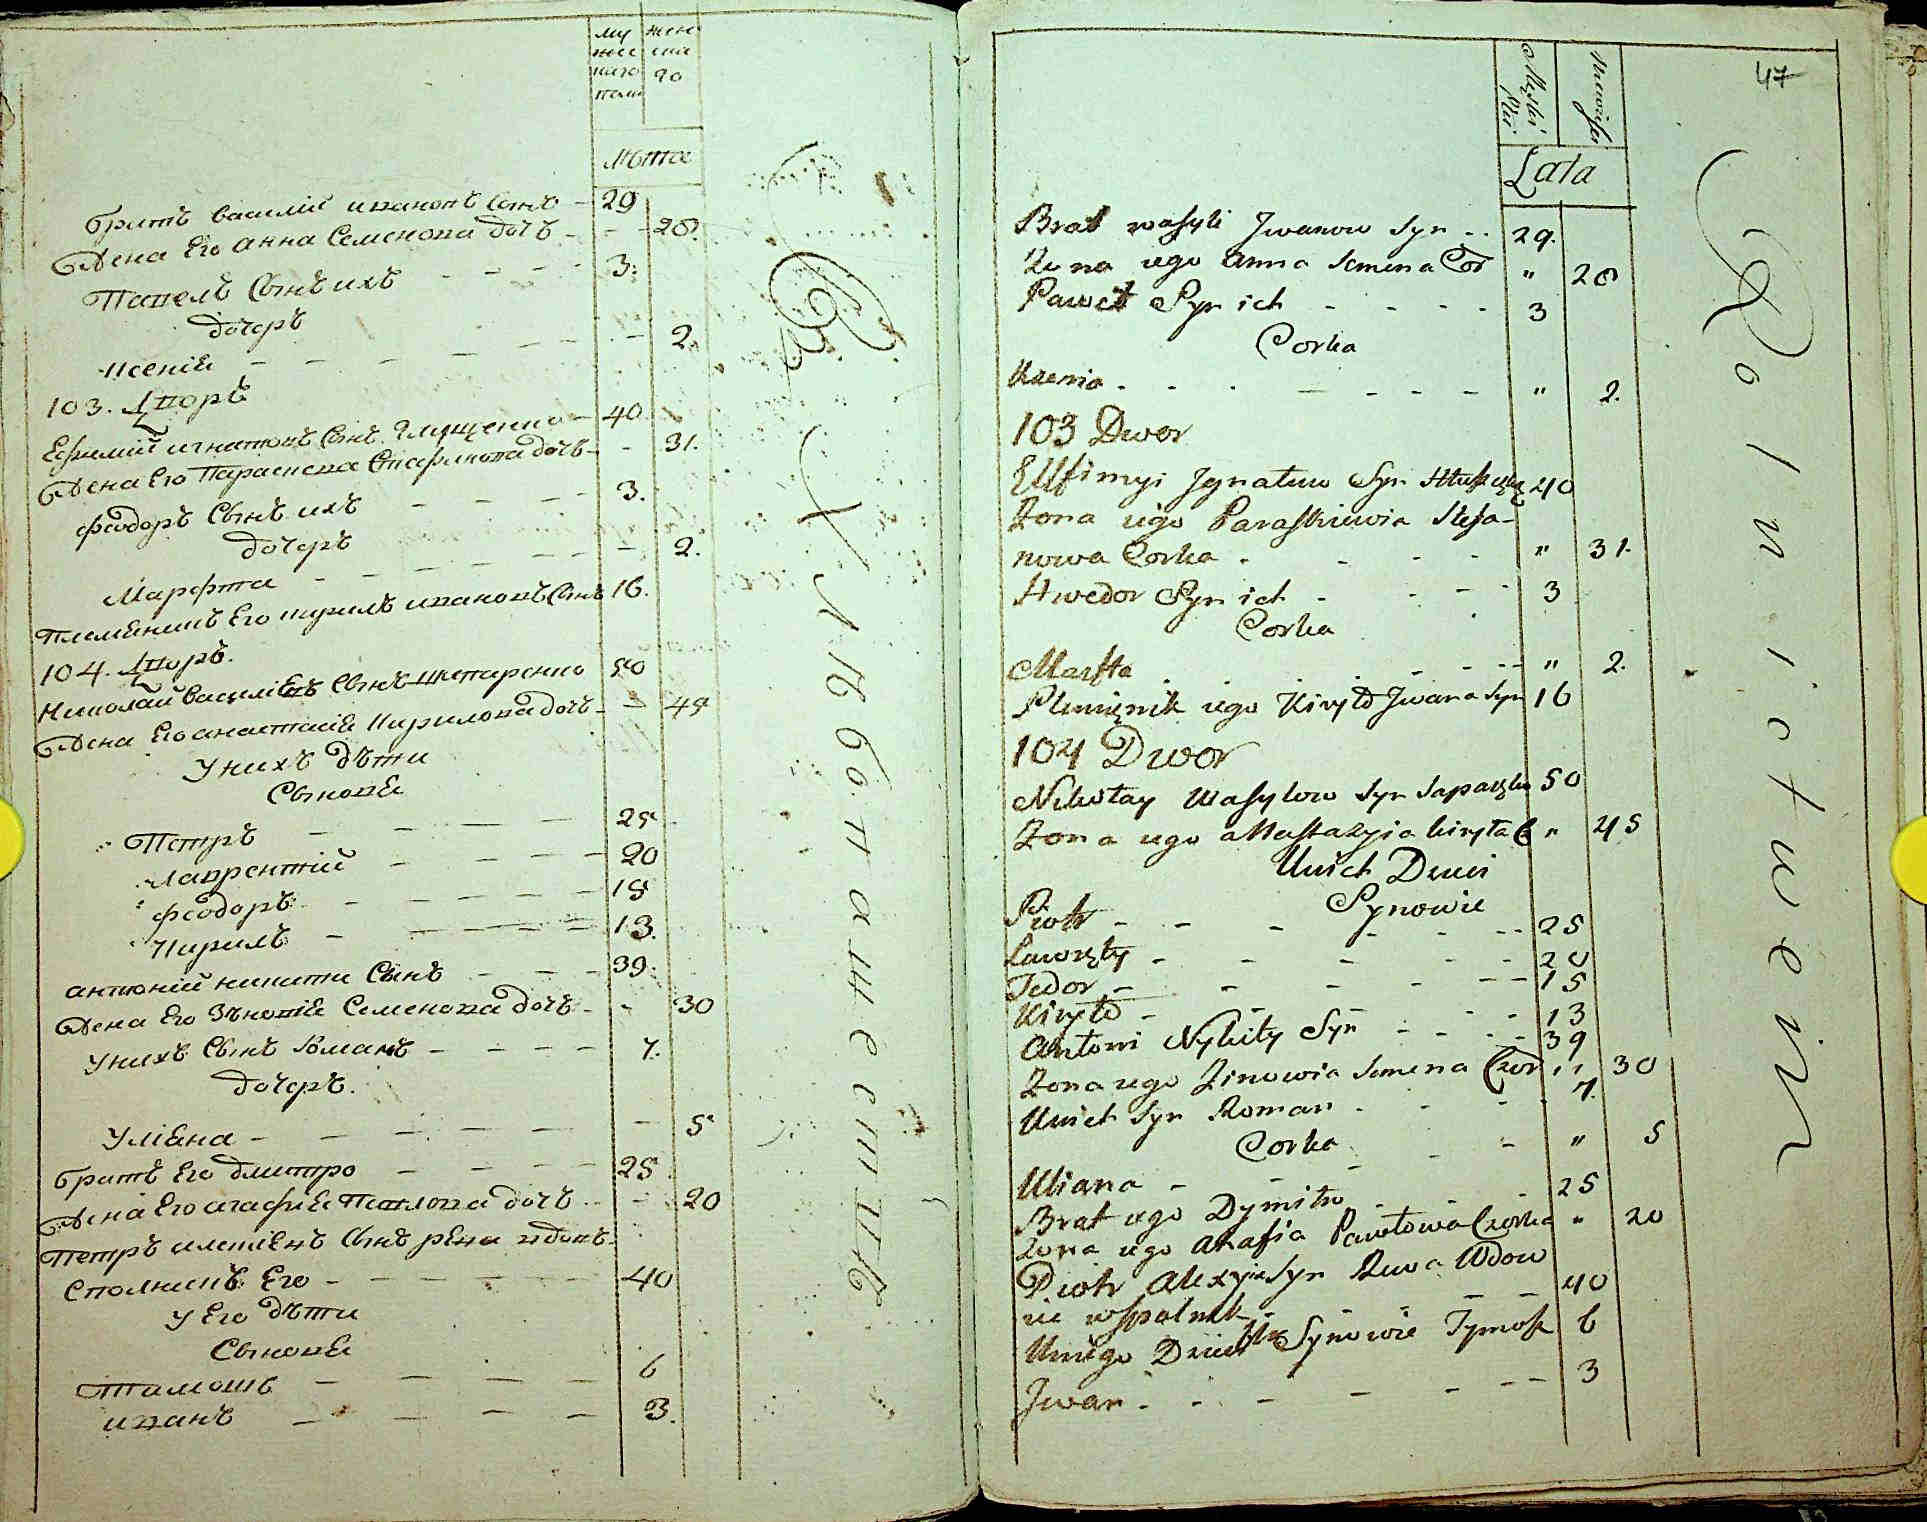 му
жес
каго
полу
жен
ска
го
лѣта
братъ василій ивановъ сынъ - 29
Жена Его анна Семенова дочъ - - - 28.
Павелъ Сынъ ихъ - - - - 3.
дочеръ
ксеніѣ - - - - - - - 2.
103. Дворъ
Ефимій игнатовъ Сынъ Глущенко - 40.
Жена Его Параскева Стефанова дочъ - - 31.
феодоръ Сынъ ихъ - - - - 3.
дочеръ
Марфта - - - - - - - 2.
Племѣникъ Его кирилъ ивановъ Сынъ 16.
104. Дворъ.
Николай василіевъ Сынъ 50
Жена Его анастасіѣ Кирилова дочъ - - 45
У нихъ дѣти
Сыновѣ
Петръ - - - - - 25
лаврентій - - - - 20
феодоръ - - - - - 15
Кирилъ - - - - - 13.
антоній никити Сынъ - - - 39.
Жена Его Зѣновіѣ Семенова дочъ - - 30
У нихъ Сынъ Романъ - - - - 7.
дочеръ.
Уліѣна - - - - - - - 5
братъ Его дмитро - - - - 25.
Жена Его агафіѣ Павлова дочъ - - 20
Петръ алексіевъ Сынъ рѣва вдовъ
Сполникъ Его - - - - - 40
У Его дѣти
Сыновѣ
Тимошъ - - - - - 6
иванъ - - - - - 3.
Любопащесткѣ
47
Męskei
Płci
Niewiasty
Lata
Brat wasyli Jwanow Syn - - 29.
Zona iego Anna Semena Cor " 28
Paweł Syn ich - - - - 3
Corka
Kzenia - - - - - - - " 2.
103 Dwor
Eufimyi Jgnatuw Syn 40
Zona iego Paraskiewia Stefa-
nowa Corka - - - " 31.
Hwedor Syn ich - - - - 3
Corka
Marfta - - - - - - " 2.
Plimięnik iego Kiryło Jwana Syn 16
104 Dwor
Nikołay Wasylow Syn 50
Zona iego aNastazyia kiryła C " 45
Unich Dzieci
Synowie
Piotr - - - - - - - 25
Lawręty - - - - - - 20
Fedor - - - - - - 15
Kiryło - - - - - 13
Antoni Nykity Syn - - - - 39
Zona iego Zinowia Semena Czor " 30
Unich Syn Roman - - - - 7.
Corka - " 5
Uliana - - - -
Brat iego Dymitro - - - 25
Zona iego Ahafia Pawłowa Czorka " 20
Piotr Alexyia Syn Rewa Wdow
iec wspolnik - - - - 40
Uniego Dzieci Synowie Tymosz 6
Jwan - - - - - - - 3
Rolnictwem